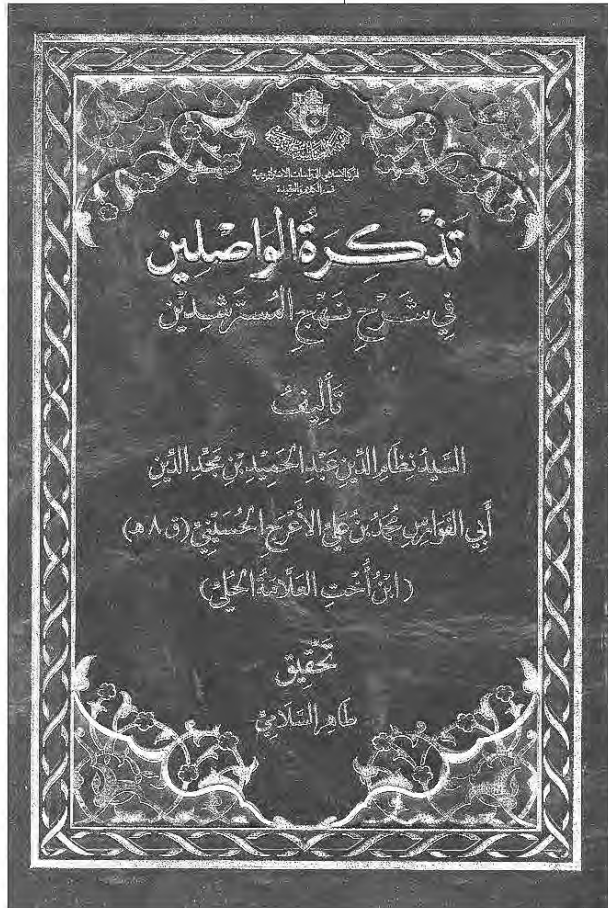 المركز الإسلامي للدراسات الاستراتيجية
قسم الكلام والعقيدة
تَذْكِرَةُ الْوَاصِلِين
فِي شَرْحِ نَهْجِ المُسْتَرْشِدِيْن
تَأْلِيْفُ
السَّيِّدُ نِظَامِ الدِّيْنِ عَبْدِ الحَمِيْدِ بْنِ مَجْدِ الدِّيْنِ
أَبِي الفَوَارِسِ مُحَمَّدُ بْنُ عَلِيِّ الأَعْرَجِ الحُسَيْنِيِّ (ق ٨ هـ)
(ابْنُ أُخْتِ العَلَّامَةِ الحِلِّيِّ)
تَحْقِيْق
طَاهِر السَّلَامِيّ